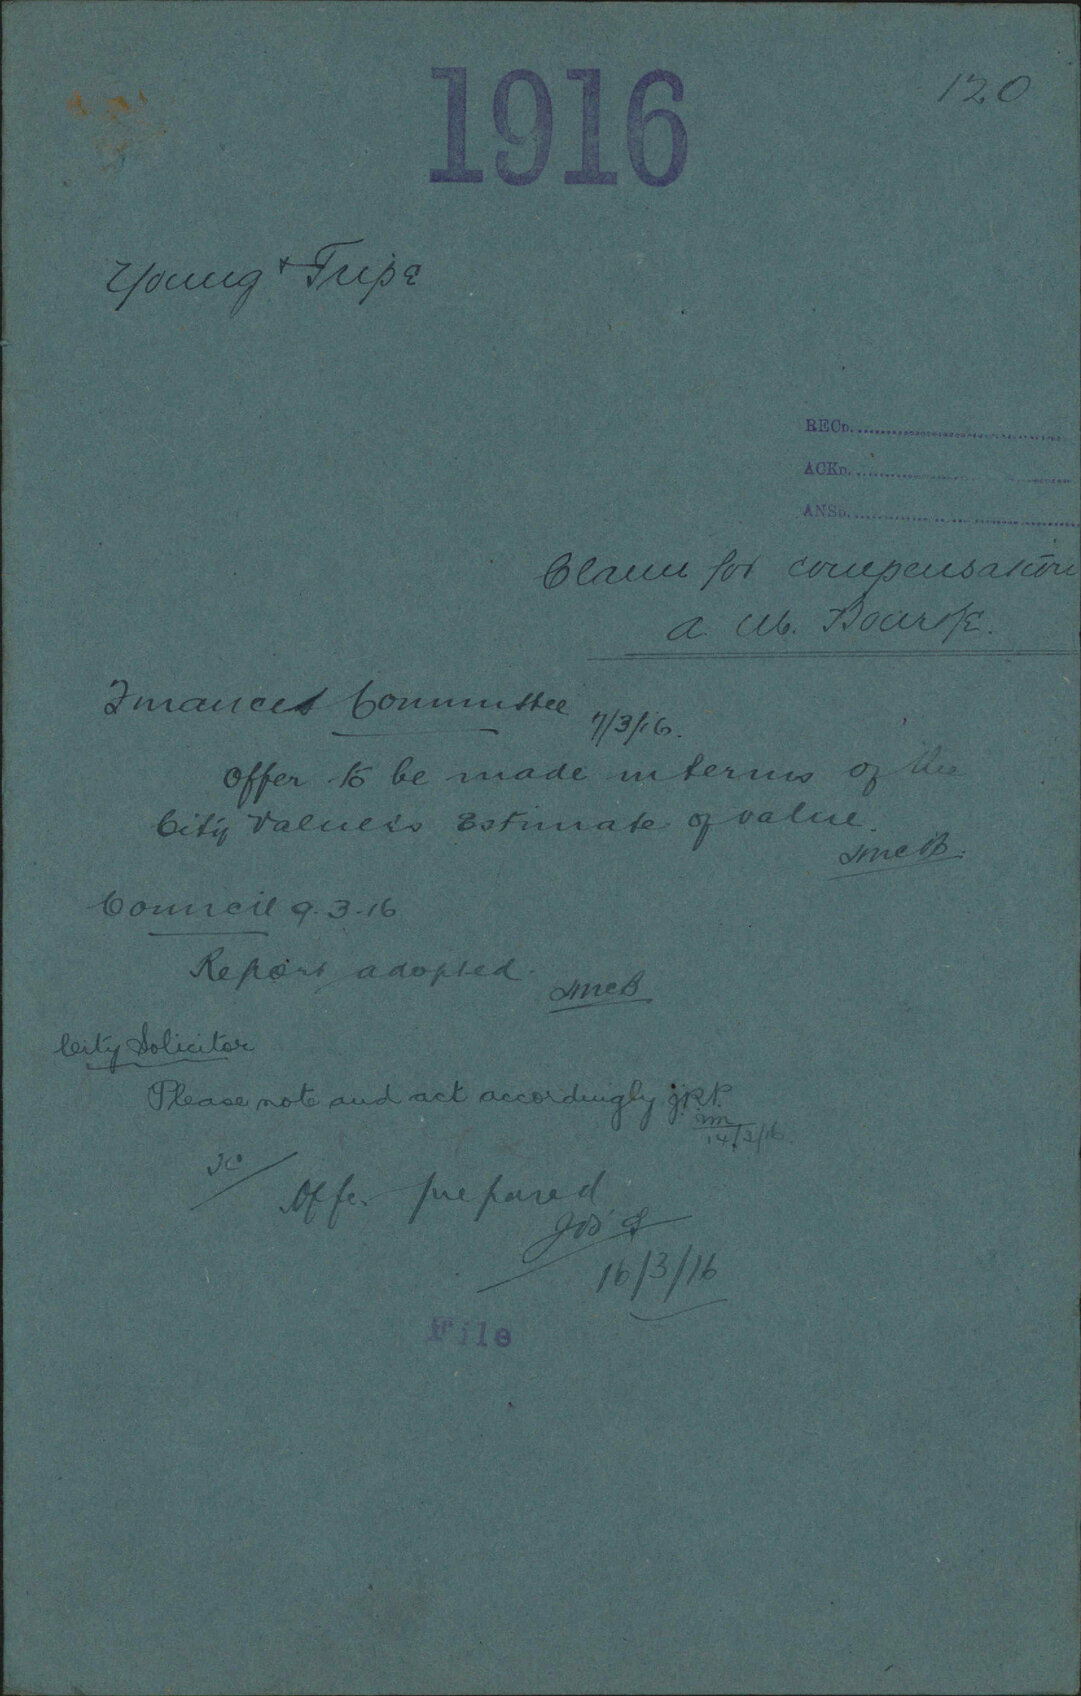 1916
120
Young & Tripe
RECD.
ACKD.
ANSD.
Claim for compensation
A. M. Bourke.
Finances Committee 7/3/16.
Offer to be made in terms of the
City Valuer's Estimate of value.
JMcB.
Council 9.3.16
Report adopted.
JMcB
City Solicitor
Please note and act accordingly J.R.P.
14/3/16
Offer prepared
16/3/16
File